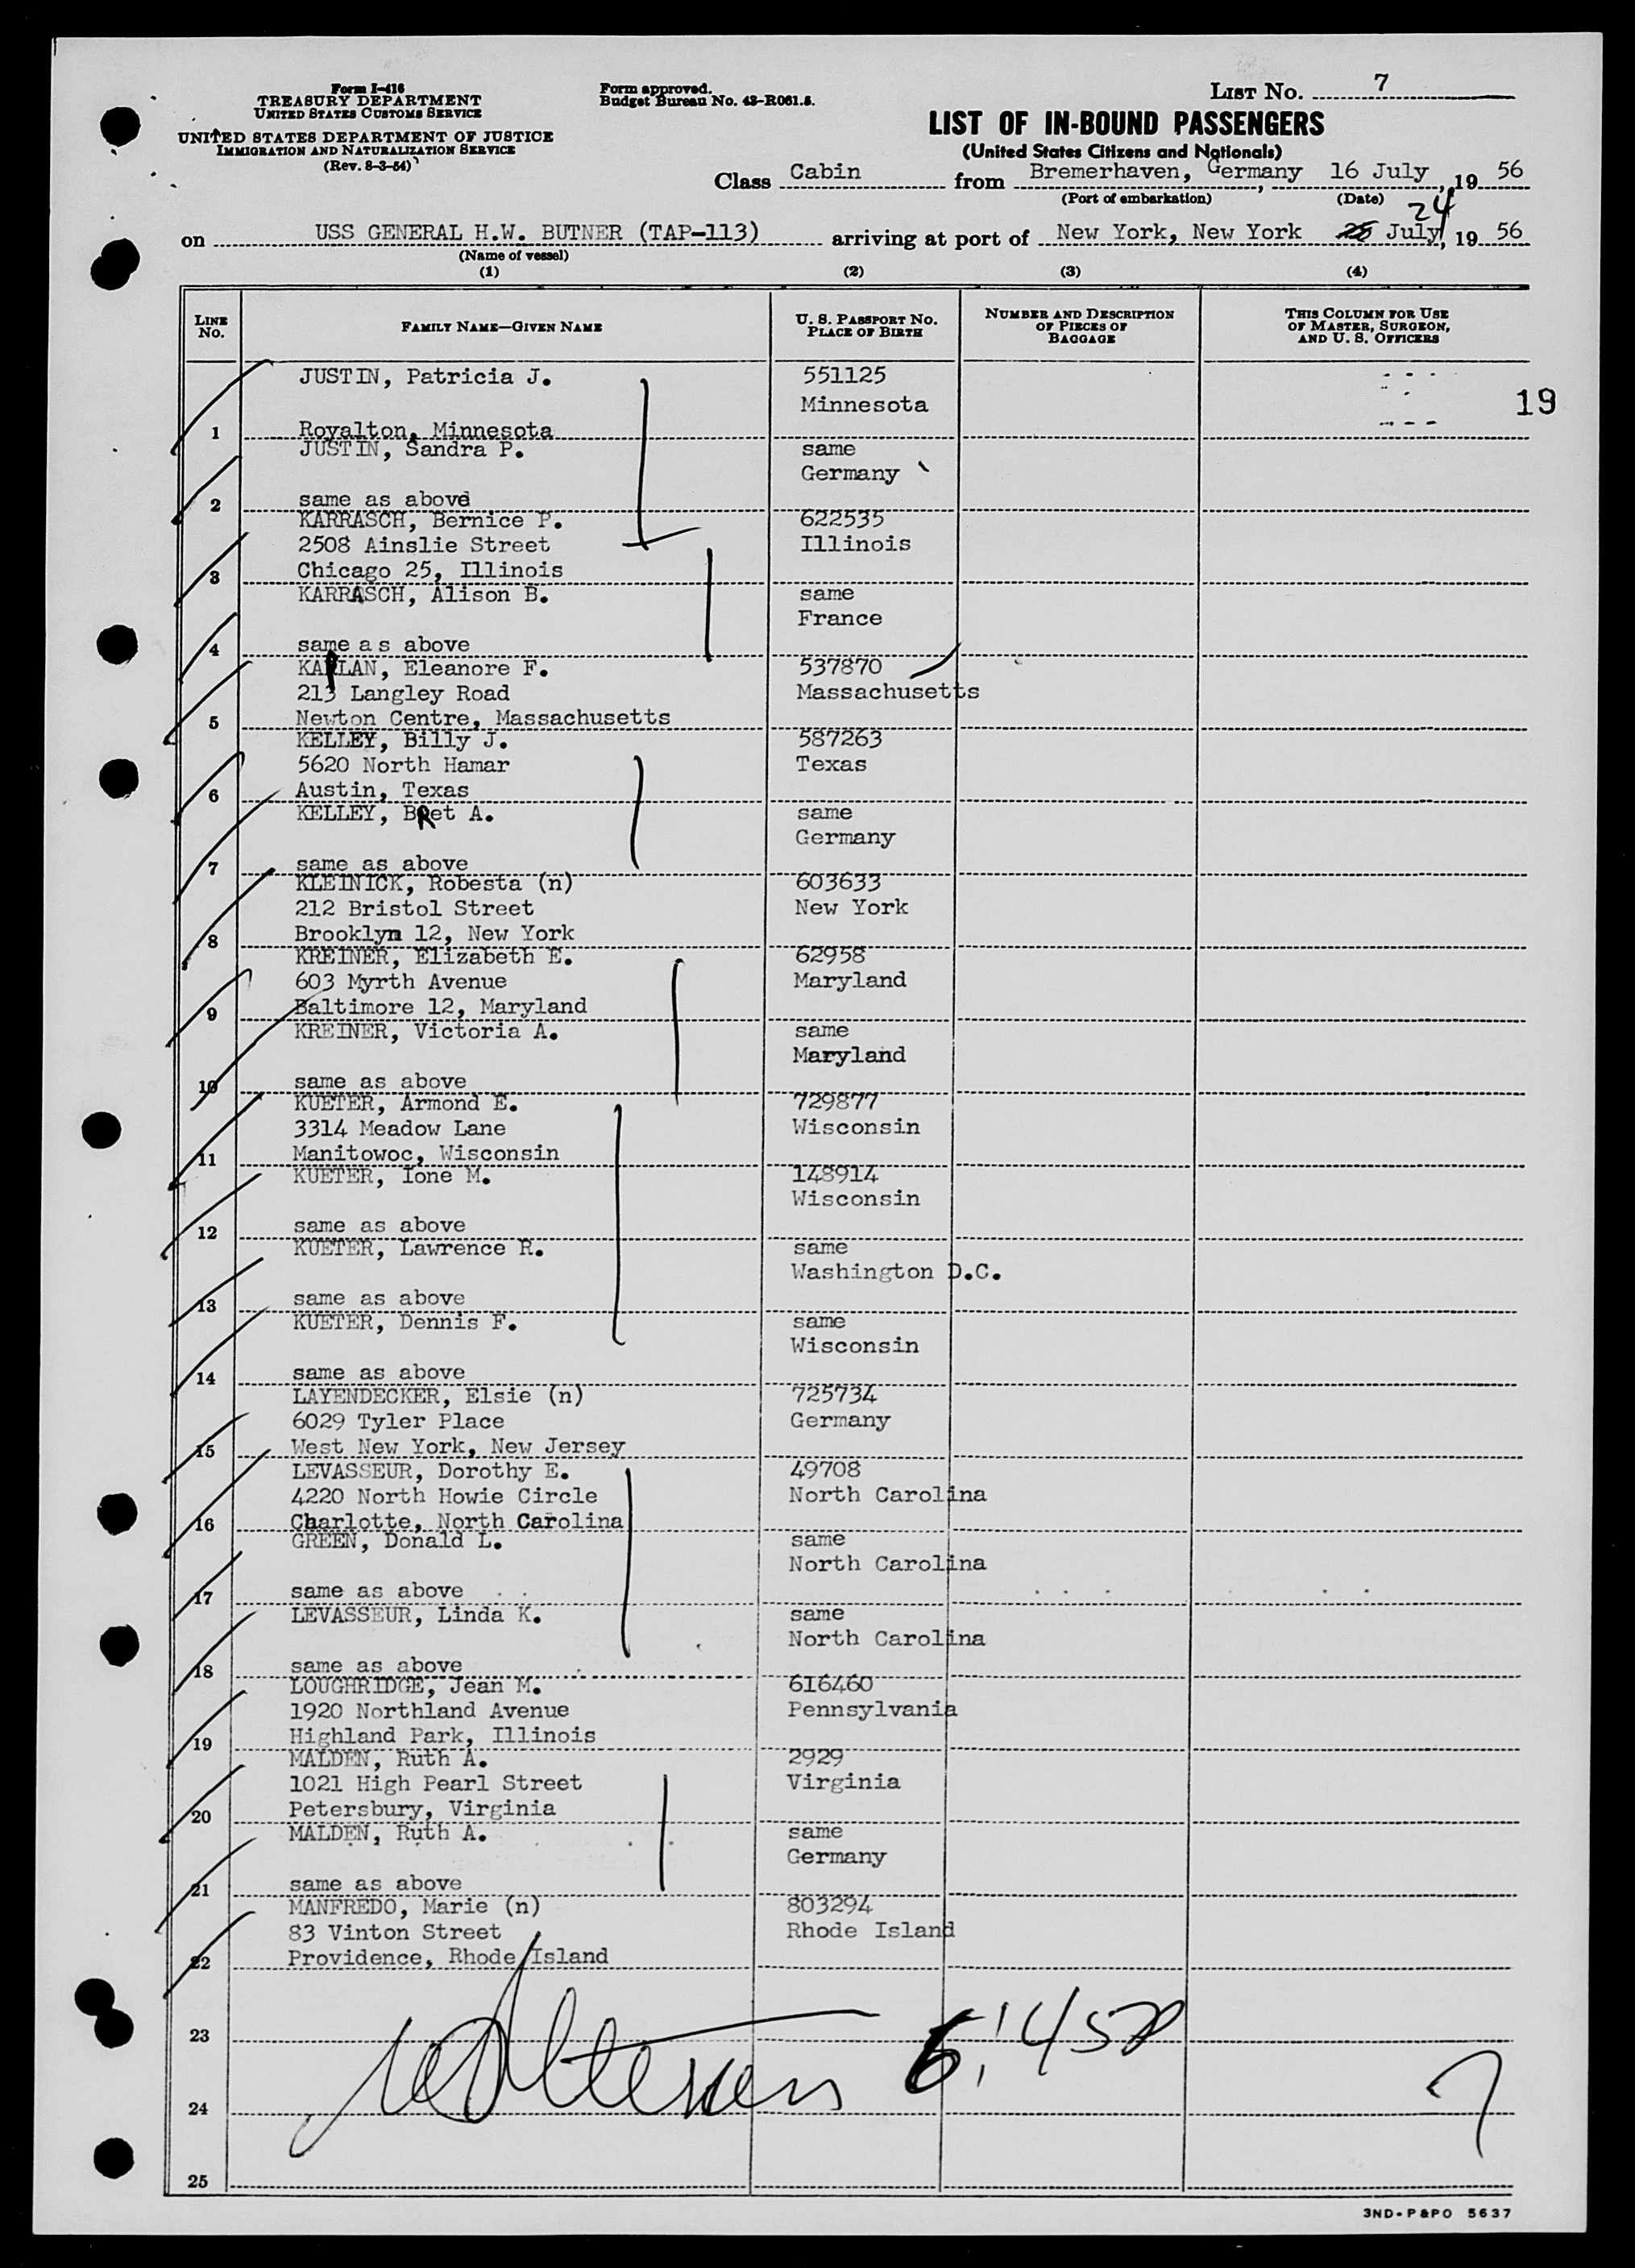 Form I-416
TREASURY DEPARTMENT
UNITED STATES CUSTOMS SERVICE
UNITED STATES DEPARTMENT OF JUSTICE
IMMIGRATION AND NATURALIZATION SERVICE
(Rev. 8-3-54)
Form approved.
Budget Bureau No. 43-R061.5.
LIST No. 7
LIST OF IN-BOUND PASSENGERS
(United States Citizens and Nationals)
Class Cabin from Bremerhaven, Germany, 16 July, 19 56
(Port of embarkation) (Date)
24
on USS GENERAL H.W. BUTNER (TAP-113) arriving at port of New York, New York July, 19 56
(Name of vessel)
(1) (2) (3) (4)
LINE No. FAMILY NAME—GIVEN NAME U. S. PASSPORT NO. PLACE OF BIRTH NUMBER AND DESCRIPTION OF PIECES OF BAGGAGE THIS COLUMN FOR USE OF MASTER, SURGEON, AND U. S. OFFICERS
JUSTIN, Patricia J. 551125
Minnesota 19
1 Royalton, Minnesota
JUSTIN, Sandra P. same
Germany
2 same as above
KARRASCH, Bernice P. 622535
2508 Ainslie Street Illinois
3 Chicago 25, Illinois
KARRASCH, Alison B. same
France
4 same as above
KAPLAN, Eleanore F. 537870
213 Langley Road Massachusetts
5 Newton Centre, Massachusetts
KELLEY, Billy J. 587263
5620 North Hamar Texas
6 Austin, Texas
KELLEY, BRet A. same
Germany
7 same as above
KLEINICK, Robesta (n) 603633
212 Bristol Street New York
8 Brooklyn 12, New York
KREINER, Elizabeth E. 62958
603 Myrth Avenue Maryland
9 Baltimore 12, Maryland
KREINER, Victoria A. same
Maryland
10 same as above
KUETER, Armond E. 729877
3314 Meadow Lane Wisconsin
11 Manitowoc, Wisconsin
KUETER, Ione M. 148914
Wisconsin
12 same as above
KUETER, Lawrence R. same
Washington D.C.
13 same as above
KUETER, Dennis F. same
Wisconsin
14 same as above
LAYENDECKER, Elsie (n) 725734
6029 Tyler Place Germany
15 West New York, New Jersey
LEVASSEUR, Dorothy E. 49708
4220 North Howie Circle North Carolina
16 Charlotte, North Carolina
GREEN, Donald L. same
North Carolina
17 same as above
LEVASSEUR, Linda K. same
North Carolina
18 same as above
LOUGHRIDGE, Jean M. 616460
1920 Northland Avenue Pennsylvania
19 Highland Park, Illinois
MALDEN, Ruth A. 2929
1021 High Pearl Street Virginia
20 Petersbury, Virginia
MALDEN, Ruth A. same
Germany
21 same as above
MANFREDO, Marie (n) 803294
83 Vinton Street Rhode Island
22 Providence, Rhode Island
23
24
25
3ND-P&PO 5637